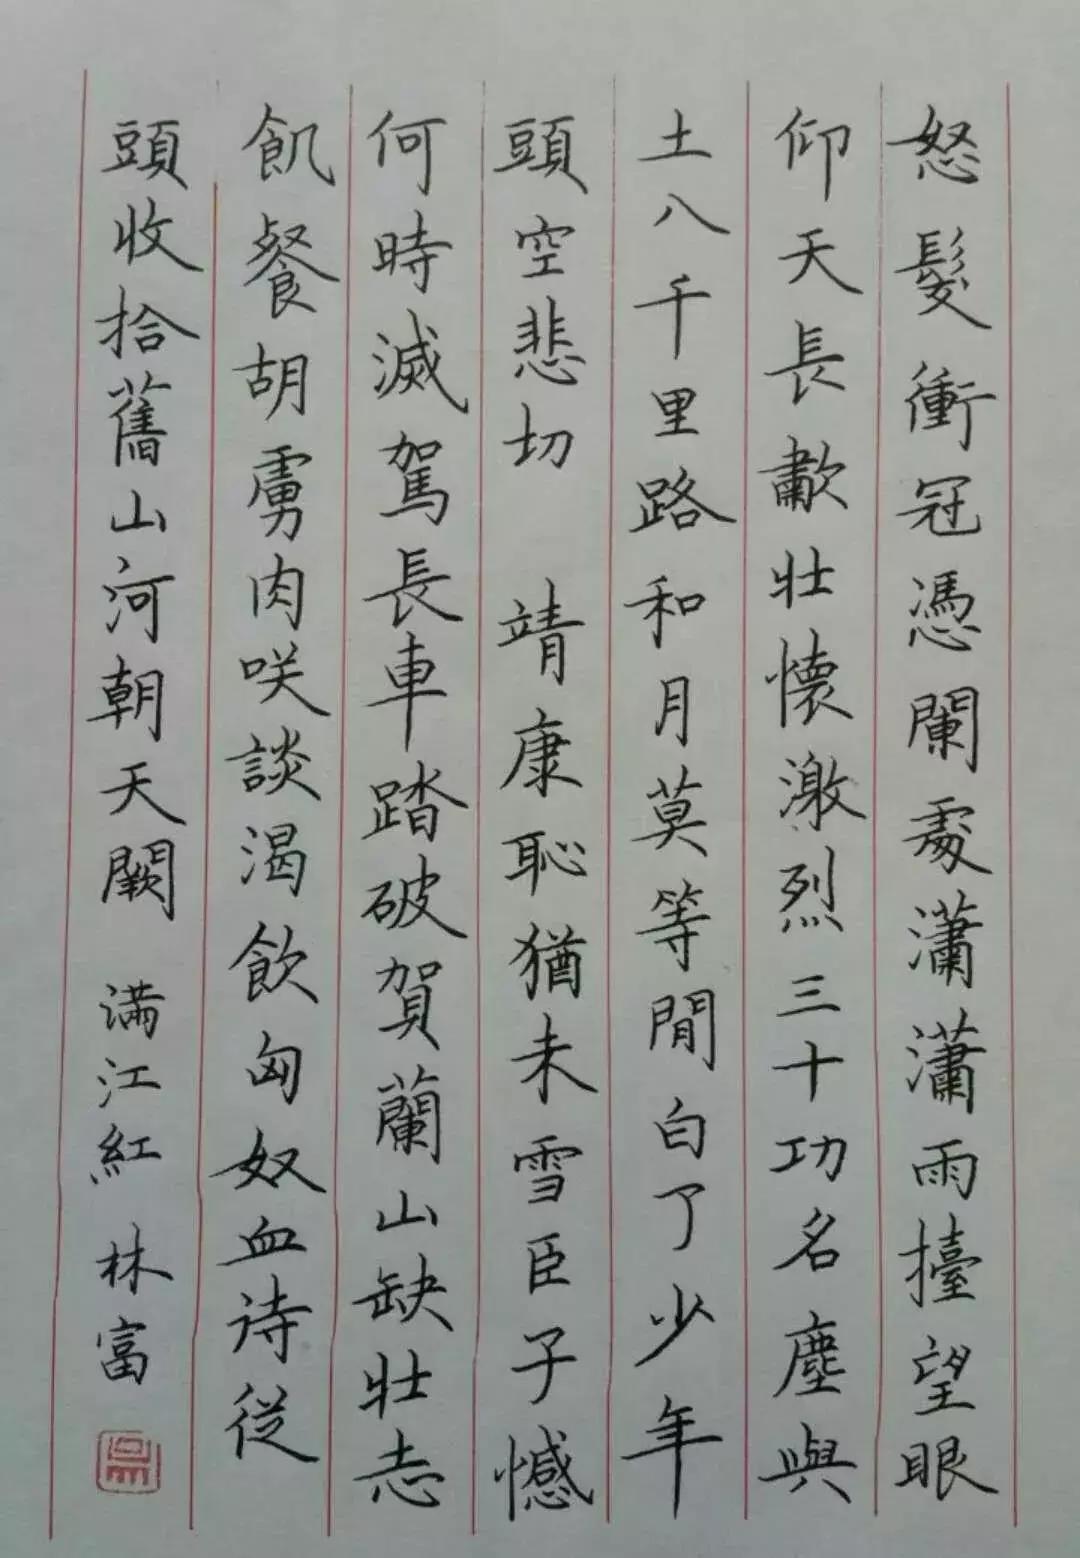 怒髮衝冠憑闌處瀟瀟雨擡望眼
仰天長歗壯懷激烈三十功名塵與
土八千里路和月莫等閒白了少年
頭空悲切 靖康恥猶未雪臣子憾
何時滅駕長車踏破賀蘭山缺壯志
飢餐胡虜肉咲談渴飲匈奴血詩從
頭收拾舊山河朝天闕 满江紅 林富